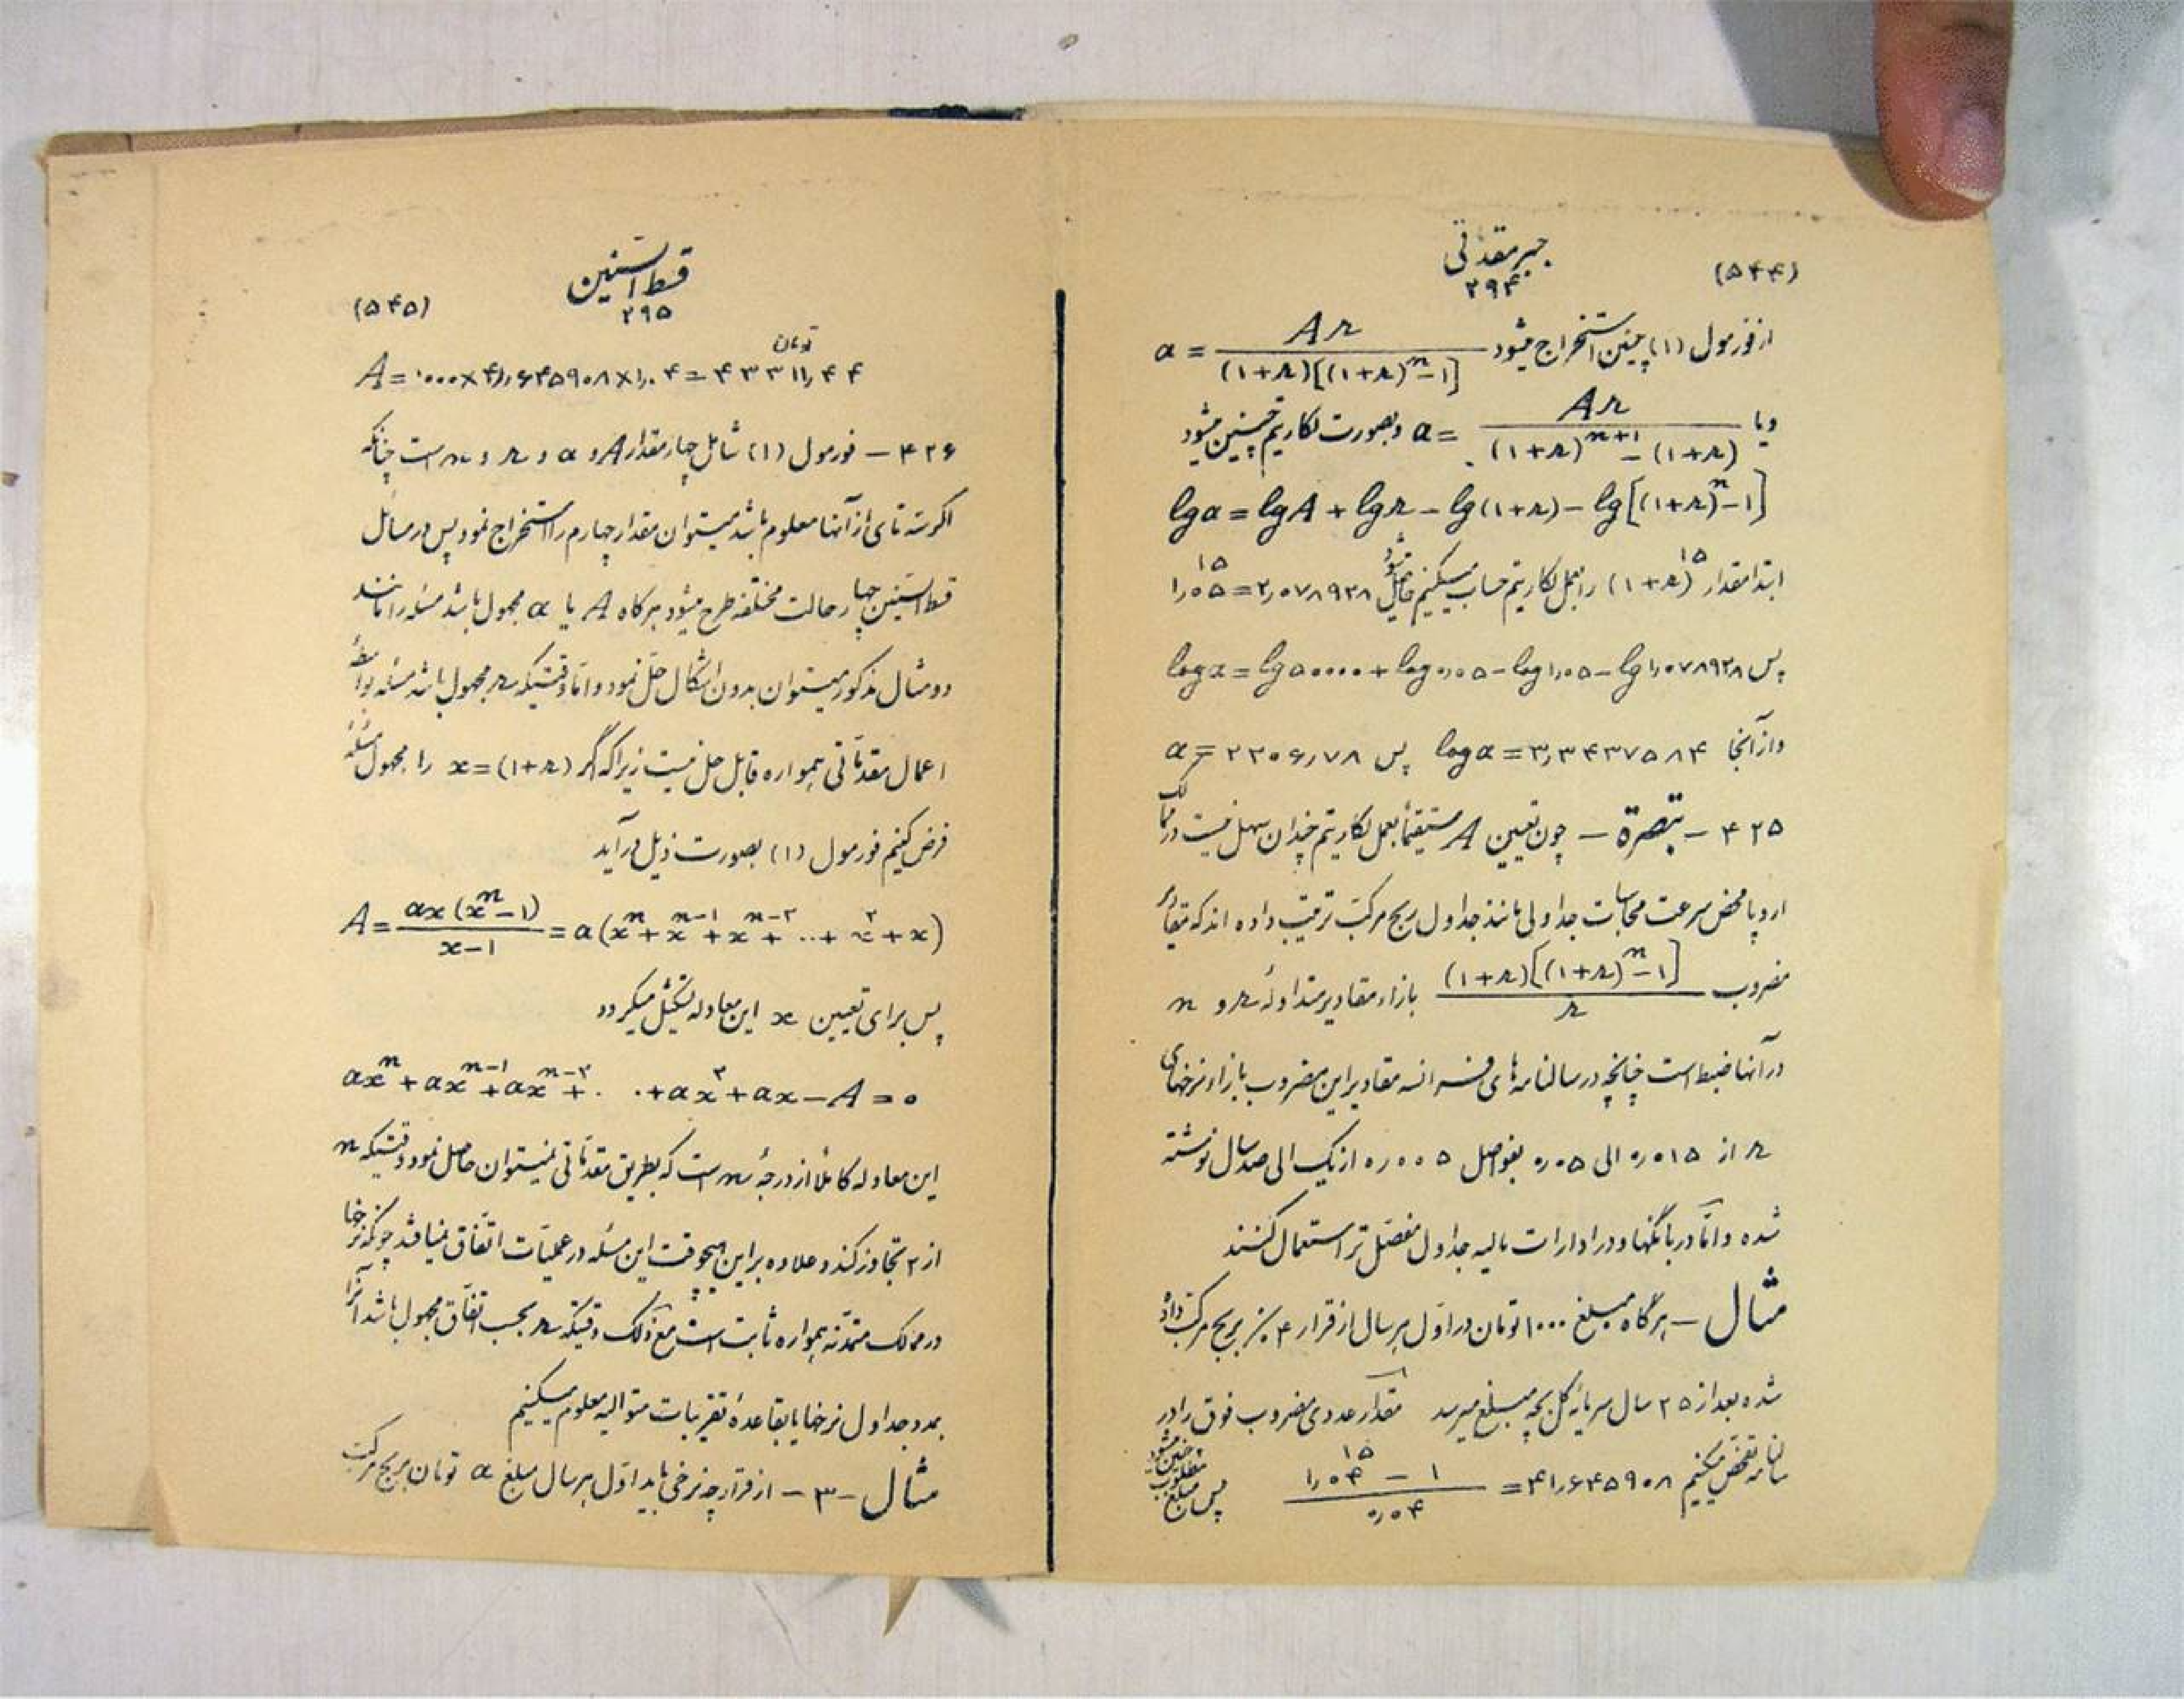 (۵۴۴)
جبر مقدماتی
۲۹۴
از فورمول (۱) چنین استخراج میشود a = Ar / (۱+r)[(۱+r)^n − ۱]
و یا a = Ar / (۱+r)^n+۱ − (۱+r) و بصورت لگاریتم چنین میشود
lg a = lg A + lg r − lg (۱+r) − lg [(۱+r)^n − ۱]
ابتدا مقدار (۱+r)^۱۵ را بعمل لگاریتم حساب میکنیم حاصل شود ۱٫۰۵^۱۵ = ۲٫۰۷۸۹۲۸
پس log a = lg ۵۰۰۰۰ + log ۰٫۰۵ − log ۱٫۰۵ − lg ۱٫۰۷۸۹۲۸
و از آنجا log a = ۳٫۳۴۳۷۵۸۴ پس a = ۲۲۰۶٫۷۸
۴۲۵ — تبصرة — چون تعیین A مستقیماً بعمل لگاریتم چندان سهل نیست در ممالک
اروپا محض سرعت محاسبات جداولی مانند جداول ربح مرکب ترتیب داده اند که مقادیر
مضروب (۱+r)[(۱+r)^n − ۱] / r بازاء مقادیر متداولهٔ r و n
در آنها ضبط است چنانچه در سالنامه های فرانسه مقادیر این مضروب بازاء نرخهای
r از ۰٫۰۱۵ الی ۰٫۰۵ بفواصل ۰٫۰۰۵ از یک الی صد سال نوشته
شده و امّا در بانگها و در ادارات مالیه جداول مفصّل تر استعمال کنند
مثال — هرگاه مبلغ ۱۰۰۰ تومان در اوّل هر سال از قرار ۴ ٪ بربح مرکب داده
شده بعد از ۲۵ سال سرمایهٔ کل بچه مبلغ میرسد مقدار عددی مضروب فوق را در
سالنامه تفحّص میکنیم ۱٫۰۴^۱۵ − ۱ / ۰٫۰۴ = ۴۱٫۶۴۵۹۰۸ پس مبلغ مطلوب چنین میشود
(۵۴۵)
قسط السنین
۲۹۵
A = ۱۰۰۰ × ۴۱٫۶۴۵۹۰۸ × ۱٫۰۴ = ۴۳۳۱۱٫۴۴ تومان
۴۲۶ — فورمول (۱) شامل چهار مقدار A و a و r و n است چنانکه
اگر سه تای از آنها معلوم باشد میتوان مقدار چهارم را استخراج نمود پس در مسائل
قسط السنین چهار حالت مختلفه طرح میشود هرگاه A یا a مجهول باشد مسئله را مانند
دو مثال مذکور میتوان بدون اشکال حلّ نمود و امّا وقتیکه r مجهول باشد مسئله بواسطهٔ
اعمال مقدماتی همواره قابل حل نیست زیرا که اگر x = (۱+r) را مجهول مسئله
فرض کنیم فورمول (۱) بصورت ذیل در آید
A = ax(x^n − ۱) / x − ۱ = a(x^n + x^n−۱ + x^n−۲ + .. + x^۲ + x)
پس برای تعیین x این معادله تشکیل میگردد
ax^n + ax^n−۱ + ax^n−۲ + . . + ax^۲ + ax − A = ۰
این معادله کاملاً از درجهٔ n است که بطریق مقدماتی نمیتوان حاصل نمود وقتیکه n
از ۲ تجاوز کند و علاوه بر این هیچوقت این مسئله در عملیّات اتّفاق نمیافتد چونکه نرخها
در ممالک متمدّنه همواره ثابت است مع ذلک وقتیکه r بحسب اتفّاق مجهول باشد آنرا
بمدد جداول نرخها یا بقاعدهٔ تقریبات متوالیه معلوم میکنیم
مثال — ۳ — از قرار چه نرخی باید اوّل هر سال مبلغ a تومان بربح مرکب